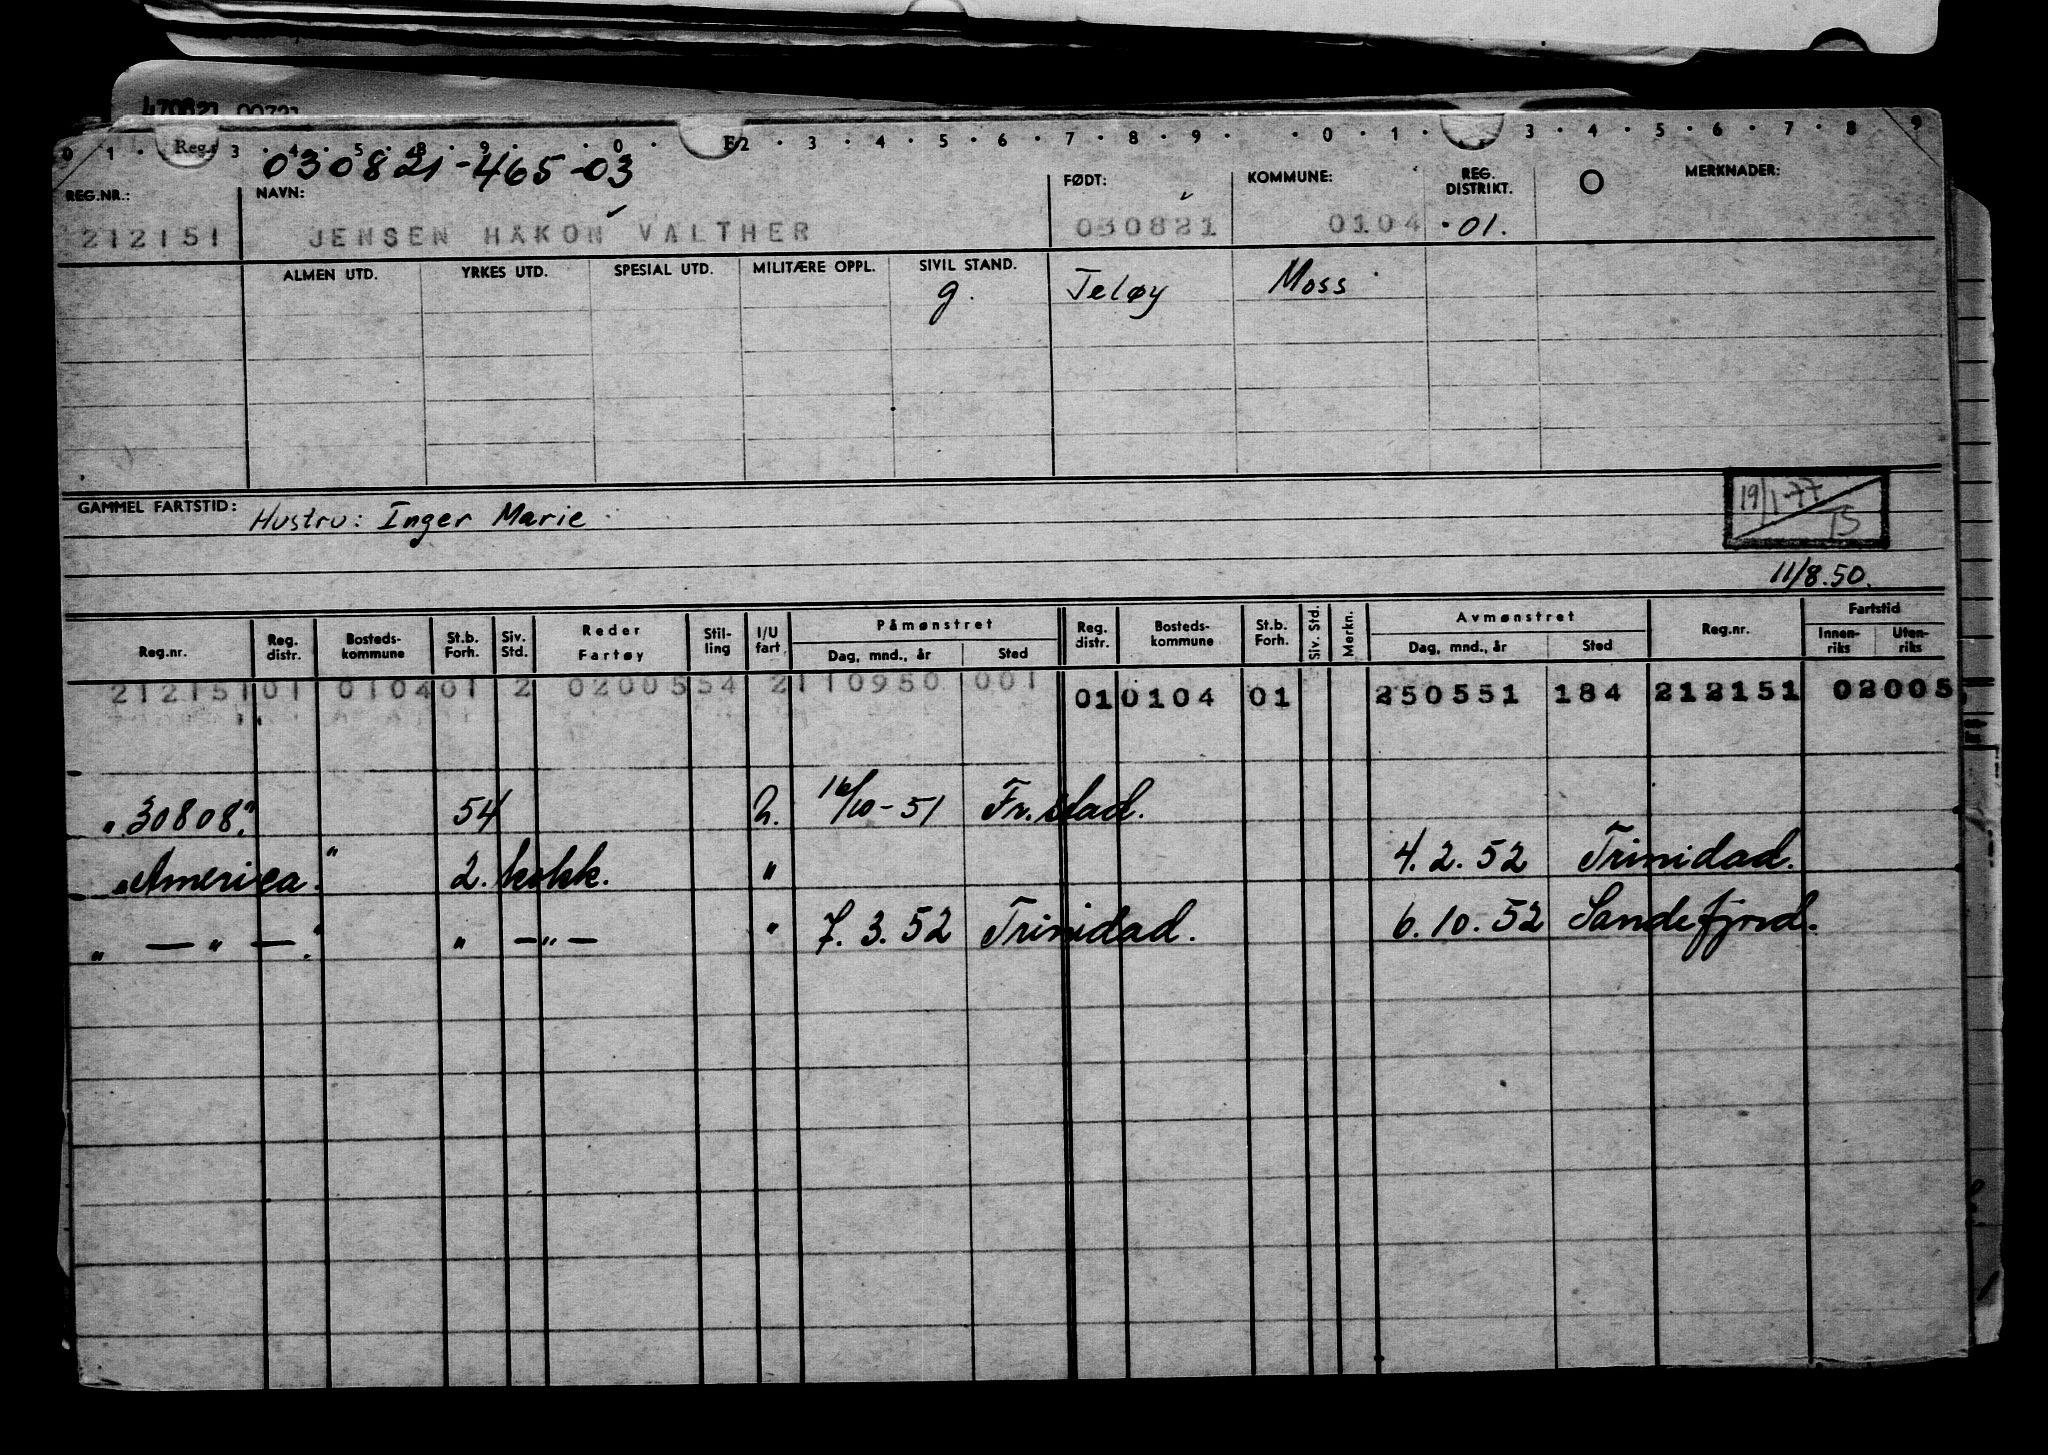 470821 00721
0 1 · Reg. 3 · 4 · 5 · 8 · 9 · · 0 · F2 · 3 · 4 · 5 · 6 · 7 · 8 · 9 · · 0 · 1 · 3 · 4 · 5 · 6 · 7 · 8 · 9
030821-465-03
REG.NR.: NAVN: FØDT: KOMMUNE: REG. DISTRIKT. O MERKNADER:
212151 JENSEN HAKON VALTHER 030821 0104 ·01.
ALMEN UTD. YRKES UTD. SPESIAL UTD. MILITÆRE OPPL. SIVIL STAND.
g. Jeløy Moss
GAMMEL FARTSTID: Hustru: Inger Marie
19/1-77 15
11/8.50.
Reg.nr. Reg. distr. Bosteds-kommune St.b. Forh. Siv. Std. Reder Fartøy Stil-ling I/U fart Påmønstret Dag, mnd., år Sted Reg. distr. Bosteds-kommune St.b. Forh. Siv. Std. Merkn. Avmønstret Dag, mnd., år Sted Reg.nr. Fartstid Innen-riks Uten-riks
212151 01 0104 01 2 0200554 2 110950 001 01 0104 01 250551 184 212151 02005
"30808" 54 2. 16/10-51 Fr.stad.
"America" 2. kokk. " 4.2.52 Trinidad.
" — " — " " —"— " 7.3.52 Trinidad. 6.10.52 Sandefjord.